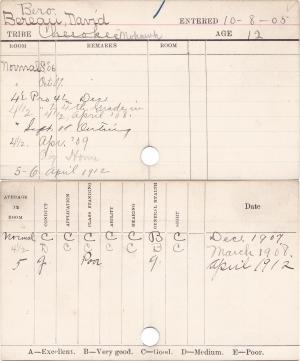 Bero.
Bereau, David ENTERED 10-8-05
TRIBE Cherokee Mohawk AGE 12
ROOM REMARKS ROOM
Normal
4½ Pro 4½ Dec
4½ " 4th Grade in
" 4½ April '08.
" Sept. 08 Outing
4½ Apr. '09
Home
5-6 April 1912
AVERAGE IN ROOM CONDUCT APPLICATION CLASS STANDING ABILITY HEARING GENERAL HEALTH SIGHT Date
Normal C C C C C B C Dec. 1907
4½ D C C C C B C March 1908.
5 g Poor g April 1912
A—Excellent. B—Very good. C—Good. D—Medium. E—Poor.